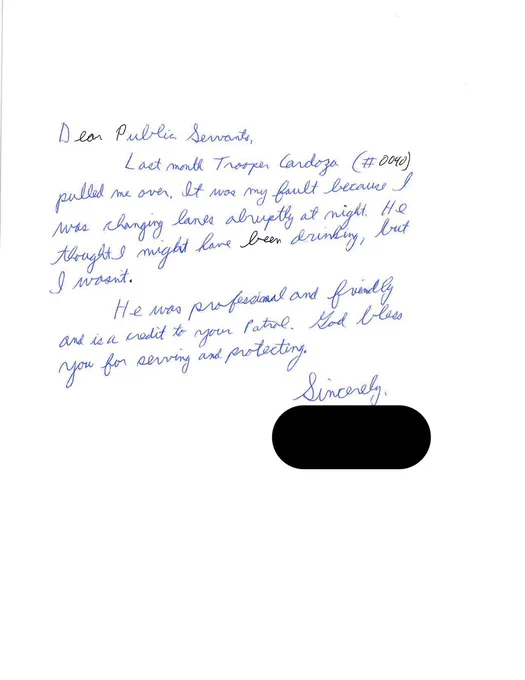 Dear Public Servants,
Last month Trooper Cardoza (#0040)
pulled me over. It was my fault because I
was changing lanes abruptly at night. He
thought I might have been drinking, but
I wasn't.
He was professional and friendly
and is a credit to your Patrol. God bless
you for serving and protecting.
Sincerely,